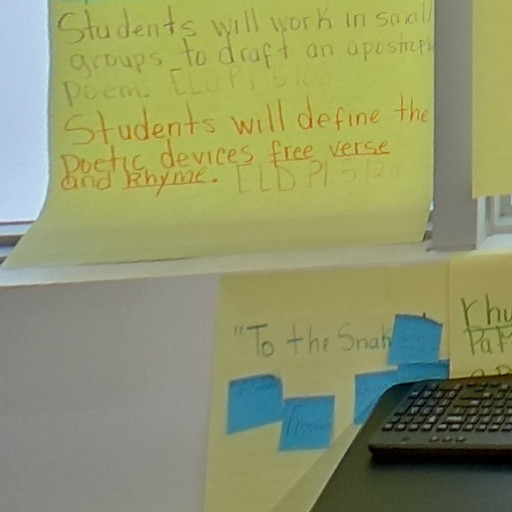 Students will work in small
groups to draft an apostroph
poem.
Students will define the
poetic devices free verse
and Rhyme. [ELD PI 5 12a
"To the Snak
rhy